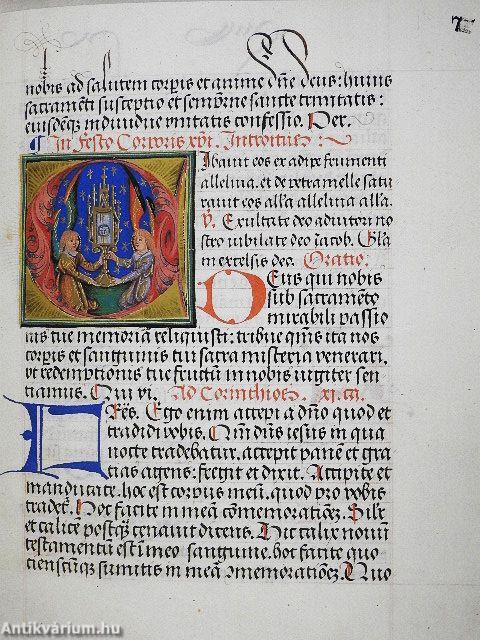 7
nobis ad salutem corpis et anime dne deus: huius
sacramenti susceptio et sempitne sancte trinitatis:
eiusdemq; indiuidue unitatis confessio. Per.
In festo Corporis xpi. Introitus
Cibauit eos ex adipe frumenti
alleluia. et de petra melle satu
rauit eos alla alleluia alla.
V. Exultate deo adiutori no
stro iubilate deo iacob. Gla
in excelsis deo. Oratio.
DEus qui nobis
sub sacrameto
mirabili passio
nis tue memoriam reliquisti: tribue qms ita nos
corpis et sanguinis tui sacra misteria venerari.
vt redemptionis tue fructum in nobis iugiter sen
tiamus. Qui vi. Ad Corinthios. xi. ca.
FRes. Ego enim accepi a dno quod et
tradidi vobis. Qm dns iesus in qua
nocte tradebatur. accepit pane et gra
tias agens: fregit et dixit. Accipite et
manducate. hoc est corpus meu. quod pro vobis
tradet. Hoc facite in mea comemoratioez. Silr
et calice postq cenauit dicens. Hic calix nouu
testamentu est i meo sanguine. hoc facite quo
tienscuq sumitis in mea comemoratioez. Quo
Antikvárium.hu